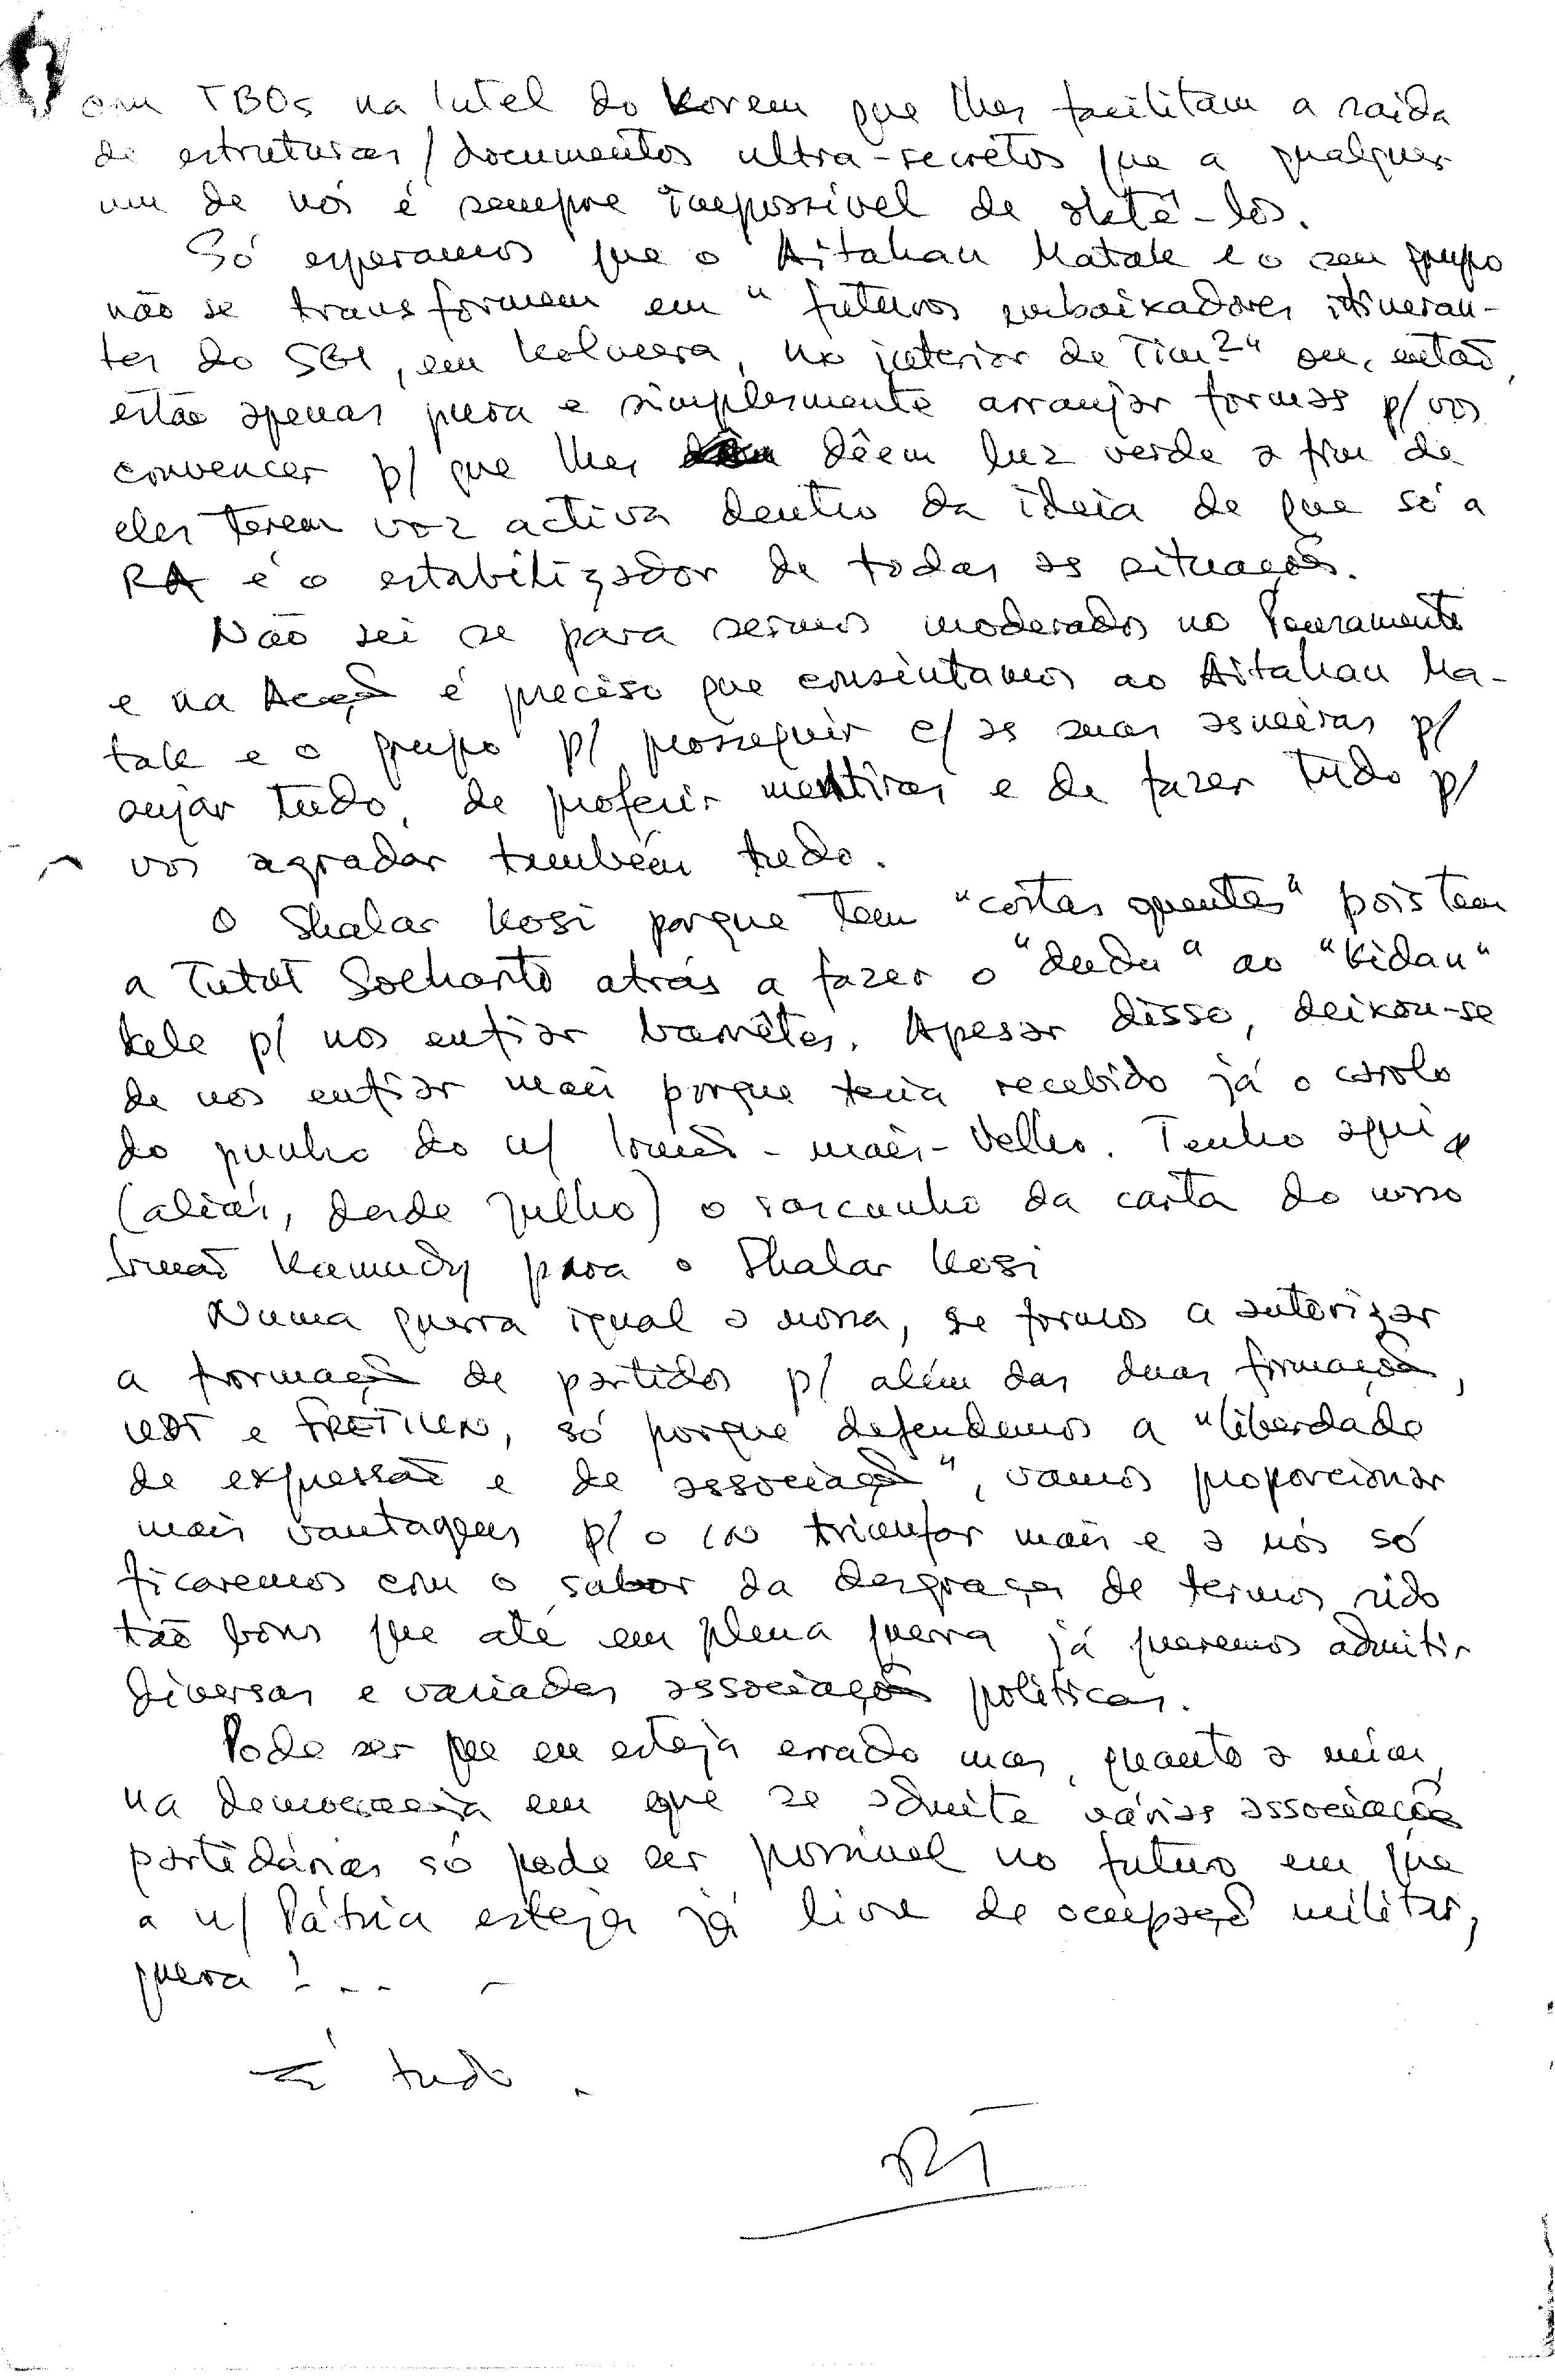 com TBOs na Intel do Korem que lhes facilitam a saída
de estruturas/documentos ultra-secretos que a qualquer
um de nós é sempre impossível de obtê-los.
Só esperamos que o Aitahan Matak e o seu grupo
não se transformem em "futuros embaixadores itineran-
tes do SGI, em , no interior de Tim?" ou, então,
estão apenas pura e simplesmente arranjar formas p/ vos
convencer p/ que lhes dêem luz verde a fim de
eles terem voz activa dentro da ideia de que só a
RA é o estabilizador de todas as situações.
Não sei se para sermos moderados no Pensamento
e na Acção é preciso que consintamos ao Aitahan Ma-
tak e o grupo p/ prosseguir c/ as suas asneiras p/
sujar tudo, de proferir mentiras e de fazer tudo p/
vos agradar também tudo.
O Shalar Kosi porque tem "costas quentes" pois tem
a Tutut Soeharto atrás a fazer o "dudu" ao "Kidan"
kele p/ nos enfiar barretes. Apesar disso, deixou-se
de nos enfiar mais porque teria recebido já o carolo
do punho do n/ Irmão-mais-Velho. Tenho aqui
(aliás, desde Julho) o rascunho da carta do nosso
Irmão Kamudy para o Shalar Kosi
Numa guerra igual a nossa, se formos a autorizar
a formação de partidos p/ além das duas formações,
UDT e FRETILIN, só porque defendemos a "liberdade
de expressão e de associação", vamos proporcionar
mais vantagens p/ o IN triunfar mais e a nós só
ficaremos com o sabor da desgraça de termos sido
tão bons que até em plena guerra já queremos admitir
diversas e variadas associações políticas.
Pode ser que eu esteja errado mas, quanto a mim,
na democracia em que se admite várias associações
partidárias só pode ser possível no futuro em que
a n/ Pátria esteja já livre de ocupação militar,
guerra!...
É tudo.